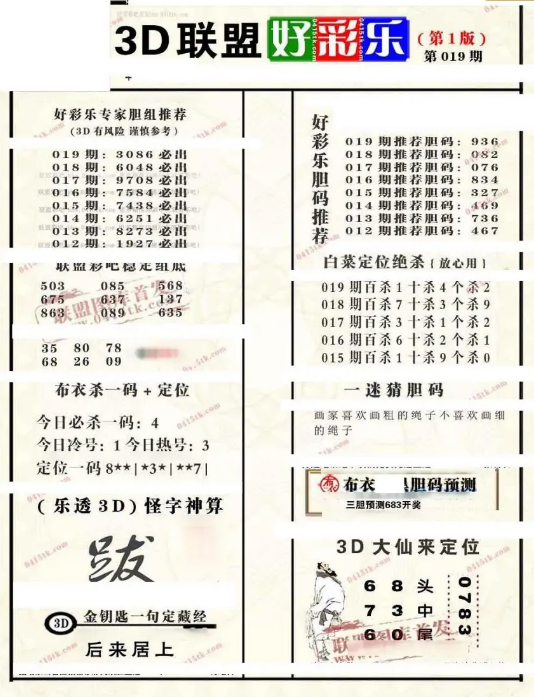 3D联盟好彩乐
(第1版)
第019期
好彩乐专家胆组推荐
(3D有风险 谨慎参考)
019期: 3086必出
018期: 6048必出
017期: 9708必出
016期: 7584必出
015期: 7438必出
014期: 6251必出
013期: 8273必出
012期: 1927必出
联盟彩吧稳定组底
503 085 568
675 637 137
863 089 635
35 80 78
68 26 09
布衣杀一码+定位
今日必杀一码: 4
今日冷号: 1 今日热号: 3
定位一码 8**|*3*|**7|
(乐透3D)怪字神算
跋
3D 金钥匙一句定藏经
后来居上
好彩乐胆码推荐
019期推荐胆码: 936
018期推荐胆码: 082
017期推荐胆码: 076
016期推荐胆码: 834
015期推荐胆码: 327
014期推荐胆码: 469
013期推荐胆码: 736
012期推荐胆码: 467
白菜定位绝杀{放心用}
019期百杀1十杀4个杀2
018期百杀7十杀3个杀9
017期百杀3十杀1个杀2
016期百杀6十杀2个杀1
015期百杀1十杀9个杀0
一迷猜胆码
画家喜欢画粗的绳子不喜欢画细
的绳子
布衣 胆码预测
三胆预测683开奖
3D大仙来定位
6 8 头
7 3 中
6 0 尾
0783